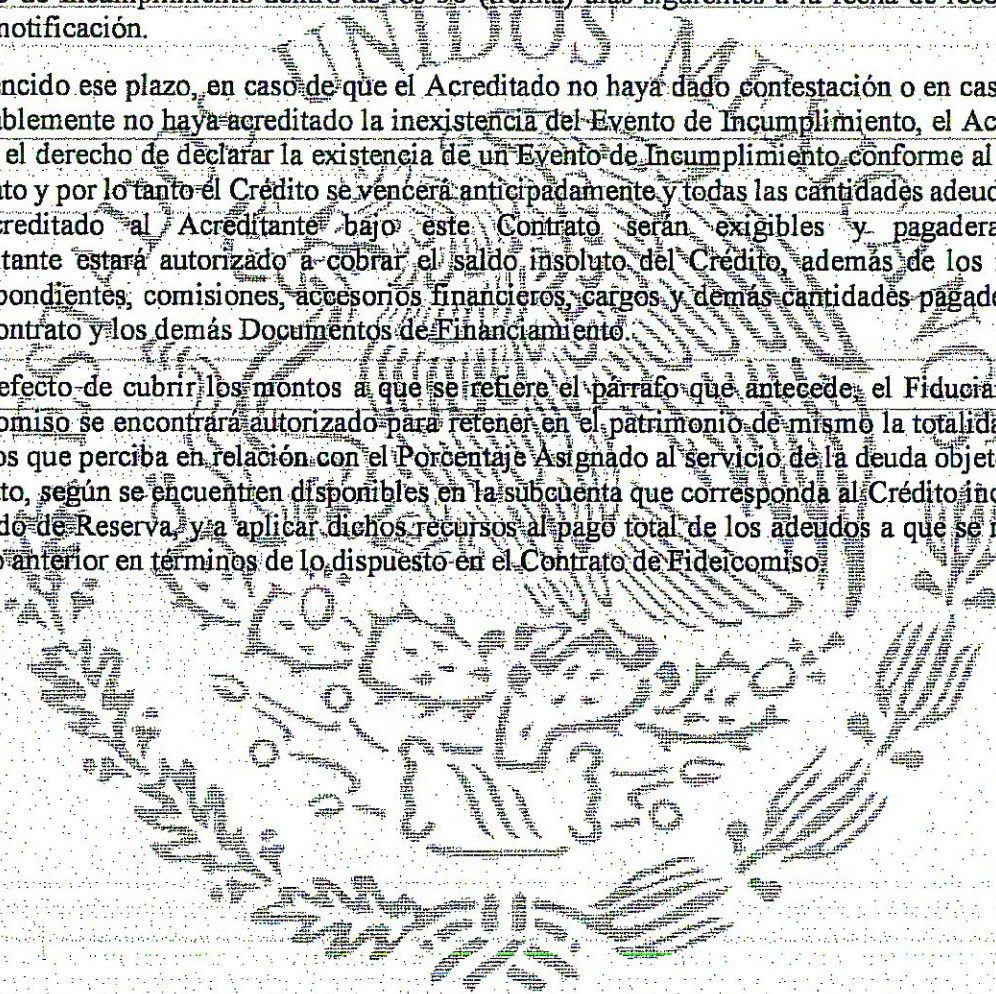 de Incumplimiento dentro de los 30 (treinta) días siguientes a la fecha de
notificación.
ncido ese plazo, en caso de que el Acreditado no haya dado contestación o en cas
blemente no haya acreditado la inexistencia del Evento de Incumplimiento, el Ac
el derecho de declarar la existencia de un Evento de Incumplimiento conforme al
to y por lo tanto el Crédito se vencerá anticipadamente y todas las cantidades adeud
creditado al Acreditante bajo este Contrato serán exigibles y pagadera
tante estará autorizado a cobrar el saldo insoluto del Crédito, además de los
pondientes, comisiones, accesorios financieros, cargos y demás cantidades pagade
ontrato y los demás Documentos de Financiamiento.
efecto de cubrir los montos a que se refiere el párrafo que antecede, el Fiducia
omiso se encontrará autorizado para retener en el patrimonio de mismo la totalida
os que perciba en relación con el Porcentaje Asignado al servicio de la deuda objet
to, según se encuentren disponibles en la subcuenta que corresponda al Crédito inc
do de Reserva, y a aplicar dichos recursos al pago total de los adeudos a que se r
o anterior en términos de lo dispuesto en el Contrato de Fideicomiso.
UNIDOS